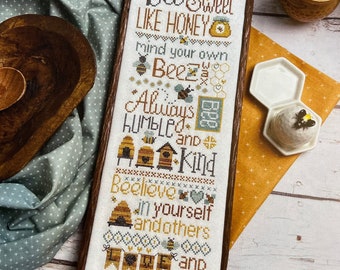 Bee Sweet
LIKE HONEY
mind your own
Beez
wax
Always
Bee
HUMBLE
and
Kind
Beelieve
in yourself
and others
and